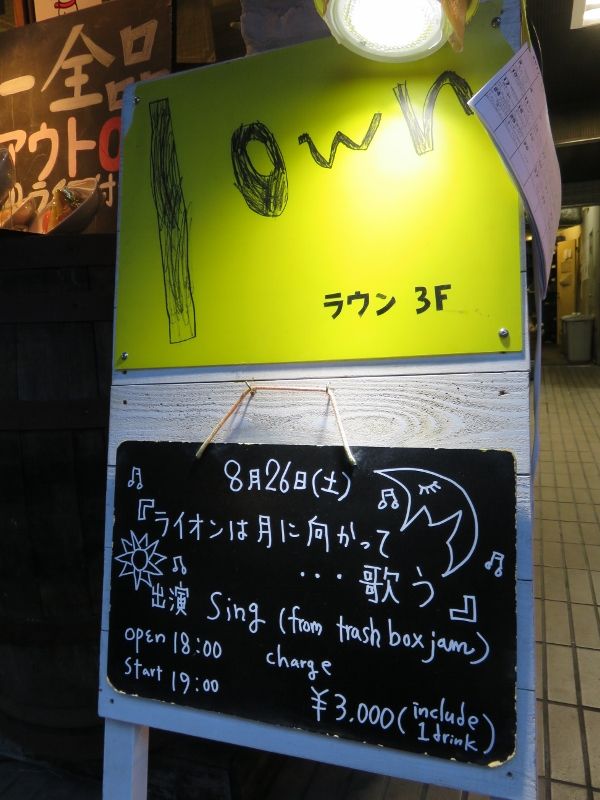 一全品
アウトO
付
lown
ラウン 3F
8月26日(土)
『ライオンは月に向かって
・・・歌う』
出演 Sing (from trash box jam)
open 18:00
Start 19:00
charge
¥3,000 (include 1 drink)